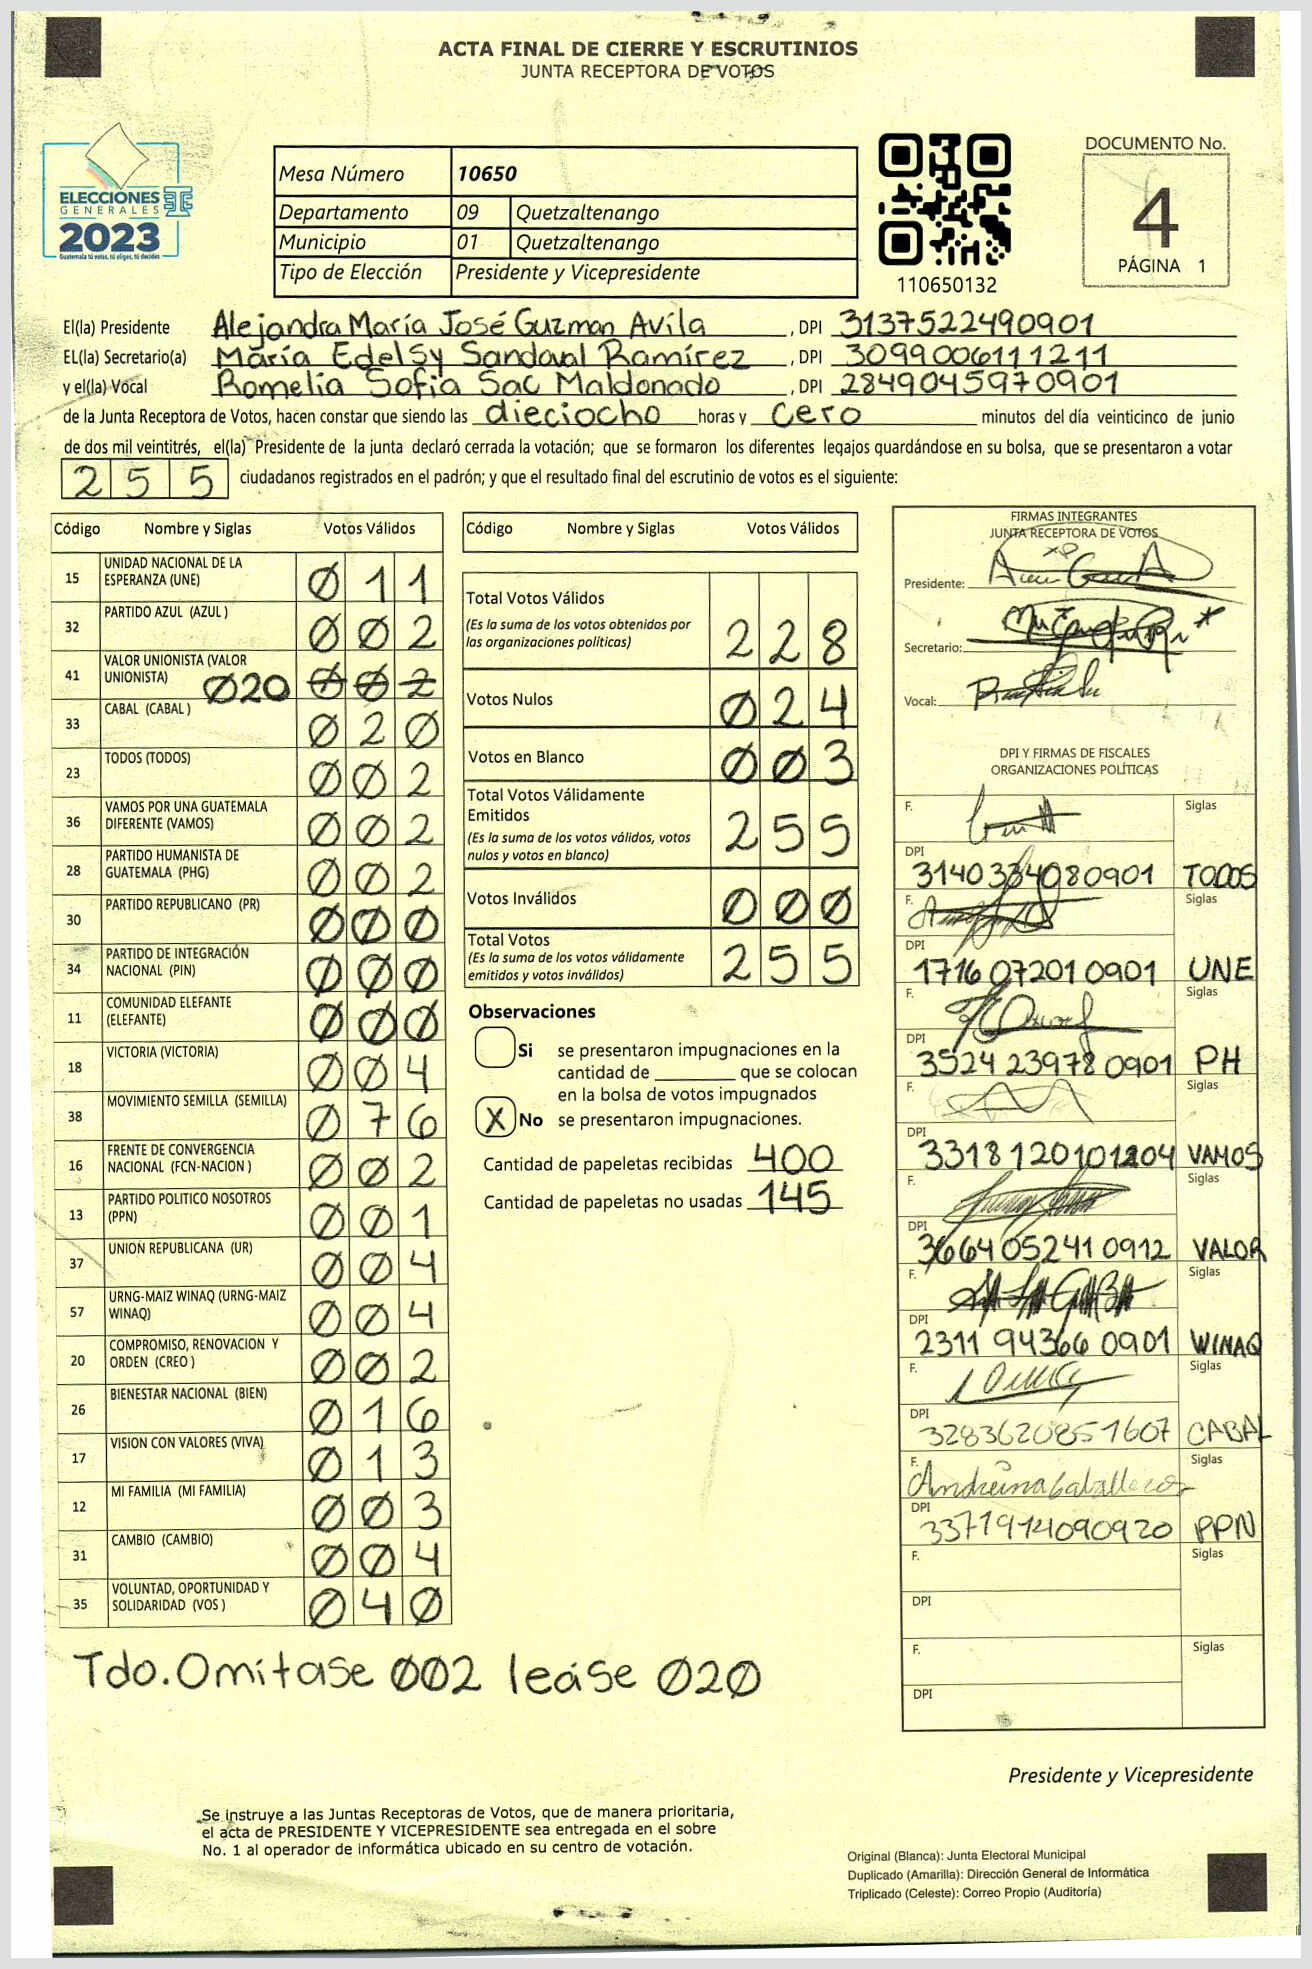 ACTA FINAL DE CIERRE Y ESCRUTINIOS
JUNTA RECEPTORA DE VOTOS
ELECCIONES
GENERALES
2023
Guatemala tú votas, tú eliges, tú decides
Mesa Número 10650
Departamento 09 Quetzaltenango
Municipio 01 Quetzaltenango
Tipo de Elección Presidente y Vicepresidente
110650132
DOCUMENTO No.
4
PÁGINA 1
El(la) Presidente Alejandra María José Guzman Avila, DPI 3137522490901
EL(la) Secretario(a) María Edelsy Sandoval Ramírez, DPI 3099006111211
y el(la) Vocal Romelia Sofia Sac Maldonado, DPI 2849045970901
de la Junta Receptora de Votos, hacen constar que siendo las dieciocho horas y cero minutos del día veinticinco de junio
de dos mil veintitrés, el(la) Presidente de la junta declaró cerrada la votación; que se formaron los diferentes legajos guardándose en su bolsa, que se presentaron a votar
255 ciudadanos registrados en el padrón; y que el resultado final del escrutinio de votos es el siguiente:
Código Nombre y Siglas Votos Válidos
15 UNIDAD NACIONAL DE LA ESPERANZA (UNE) 011
32 PARTIDO AZUL (AZUL ) 002
41 VALOR UNIONISTA (VALOR UNIONISTA) 020 002
33 CABAL (CABAL ) 020
23 TODOS (TODOS) 002
36 VAMOS POR UNA GUATEMALA DIFERENTE (VAMOS) 002
28 PARTIDO HUMANISTA DE GUATEMALA (PHG) 002
30 PARTIDO REPUBLICANO (PR) 000
34 PARTIDO DE INTEGRACIÓN NACIONAL (PIN) 000
11 COMUNIDAD ELEFANTE (ELEFANTE) 000
18 VICTORIA (VICTORIA) 004
38 MOVIMIENTO SEMILLA (SEMILLA) 076
16 FRENTE DE CONVERGENCIA NACIONAL (FCN-NACION ) 002
13 PARTIDO POLITICO NOSOTROS (PPN) 001
37 UNION REPUBLICANA (UR) 004
57 URNG-MAIZ WINAQ (URNG-MAIZ WINAQ) 004
20 COMPROMISO, RENOVACION Y ORDEN (CREO ) 002
26 BIENESTAR NACIONAL (BIEN) 016
17 VISION CON VALORES (VIVA) 013
12 MI FAMILIA (MI FAMILIA) 003
31 CAMBIO (CAMBIO) 004
35 VOLUNTAD, OPORTUNIDAD Y SOLIDARIDAD (VOS ) 040
Tdo. Omitase 002 leáse 020
Código Nombre y Siglas Votos Válidos
Total Votos Válidos 228
(Es la suma de los votos obtenidos por
las organizaciones políticas)
Votos Nulos 024
Votos en Blanco 003
Total Votos Válidamente
Emitidos 255
(Es la suma de los votos válidos, votos
nulos y votos en blanco)
Votos Inválidos 000
Total Votos 255
(Es la suma de los votos válidamente
emitidos y votos inválidos)
Observaciones
Si se presentaron impugnaciones en la
cantidad de ________ que se colocan
en la bolsa de votos impugnados
X No se presentaron impugnaciones.
Cantidad de papeletas recibidas 400
Cantidad de papeletas no usadas 145
FIRMAS INTEGRANTES
JUNTA RECEPTORA DE VOTOS
Presidente:
Secretario:
Vocal:
DPI Y FIRMAS DE FISCALES
ORGANIZACIONES POLÍTICAS
F. Siglas
DPI 3140334080901 TODOS
F. Siglas
DPI 1716072010901 UNE
F. Siglas
DPI 3524239780901 PH
F. Siglas
DPI 3318120101204 VAMOS
F. Siglas
DPI 3664052410912 VALOR
F. Siglas
DPI 2311943660901 WINAQ
F. Siglas
DPI 3283620851607 CABAL
F. Andreina Caballeros Siglas
DPI 3371914090920 PPN
F. Siglas
DPI
F. Siglas
DPI
Presidente y Vicepresidente
Se instruye a las Juntas Receptoras de Votos, que de manera prioritaria,
el acta de PRESIDENTE Y VICEPRESIDENTE sea entregada en el sobre
No. 1 al operador de informática ubicado en su centro de votación.
Original (Blanca): Junta Electoral Municipal
Duplicado (Amarilla): Dirección General de Informática
Triplicado (Celeste): Correo Propio (Auditoría)